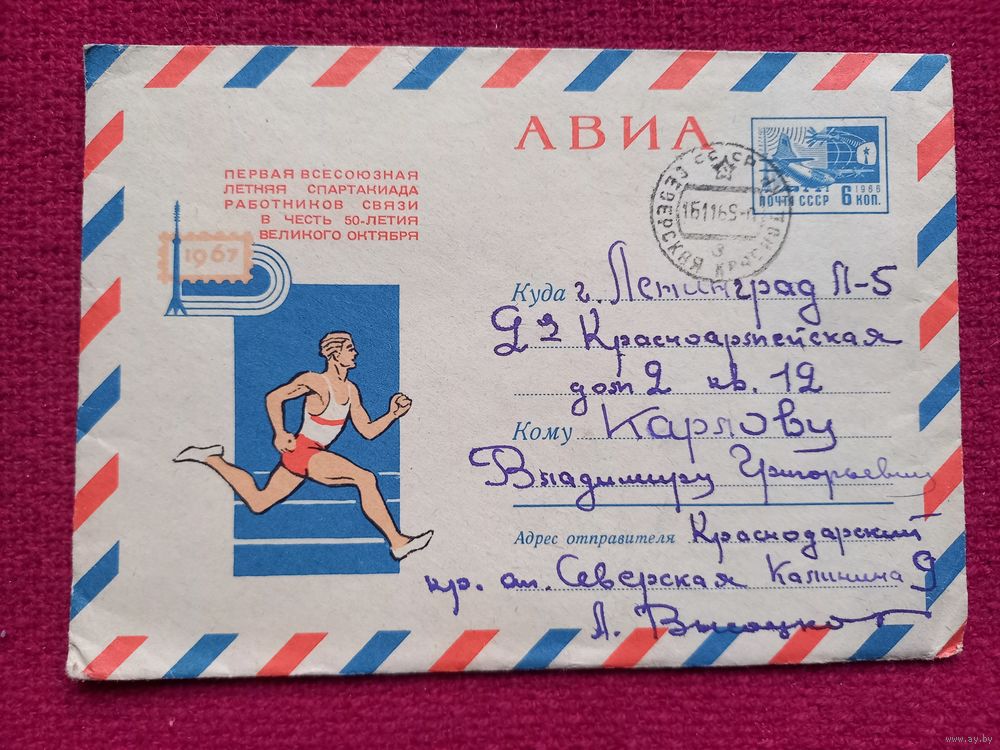 АВИА
ПЕРВАЯ ВСЕСОЮЗНАЯ
ЛЕТНЯЯ СПАРТАКИАДА
РАБОТНИКОВ СВЯЗИ
В ЧЕСТЬ 50-ЛЕТИЯ
ВЕЛИКОГО ОКТЯБРЯ
1967
1966
ПОЧТА СССР 6 КОП.
СССР
СЕВЕРСКАЯ
Куда г. Ленинград Л-5
Красноармейская
дом 2 кв. 12
Кому Карпову
Владимиру Григорьевичу
Адрес отправителя Краснодарский
кр. ст. Северская Калинина 9
А.
www.ay.by